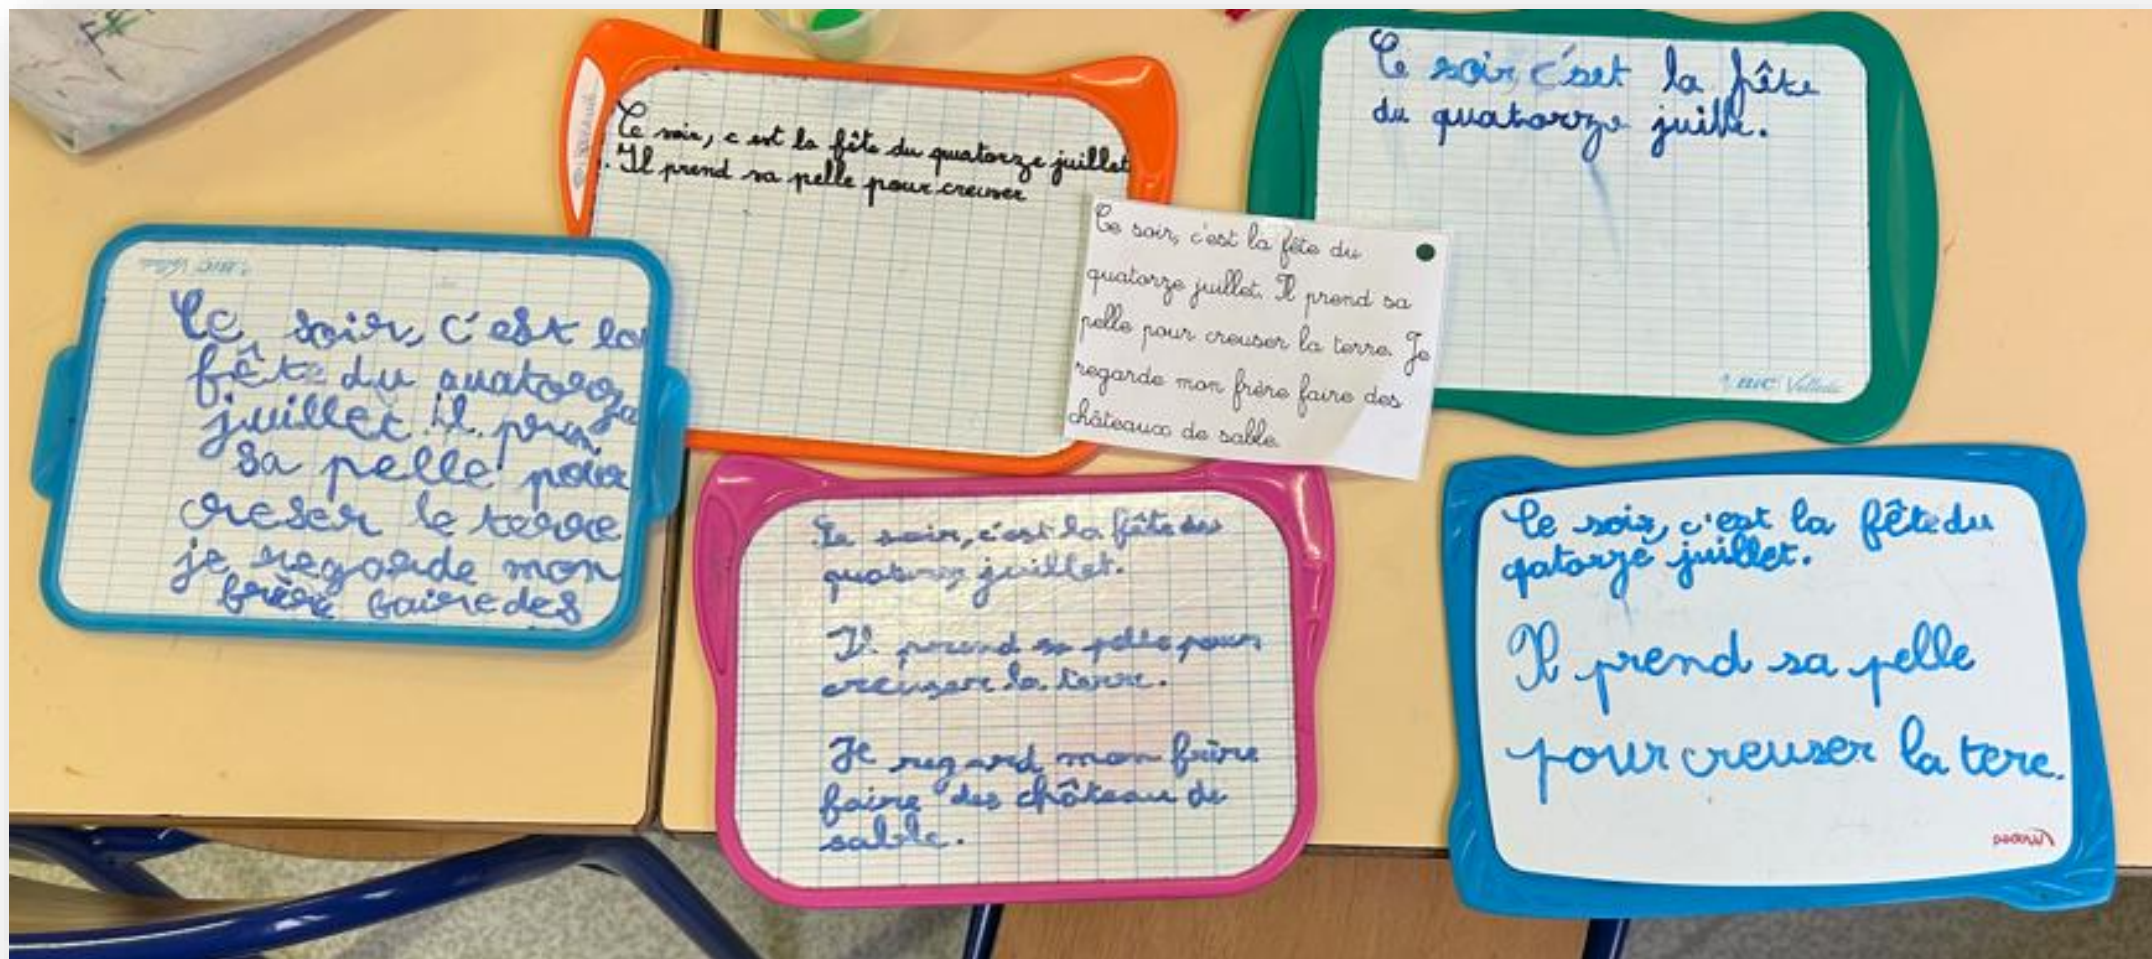 Ce soir, c est la fête du quatorze juillet
. Il prend sa pelle pour creuser
Ce soir, c'set la fête
du quatorze juille.
Ce soir, c'est la fête du
quatorze juillet. Il prend sa
pelle pour creuser la terre. Je
regarde mon frère faire des
châteaux de sable.
Velleda
Ce soir, c'est la
fête du quatorze
juillet il pren
sa pelle pour
creser le terre
je regarde mon
frère faire des
Ce soir, c'est la fête du
juillet.
Il prend sa pelle pour
creuser la terre.
Je regard mon frère
faire des château de
sable.
Ce soir, c'est la fête du
qatorze juillet.
Il prend sa pelle
pour creuser la tere.